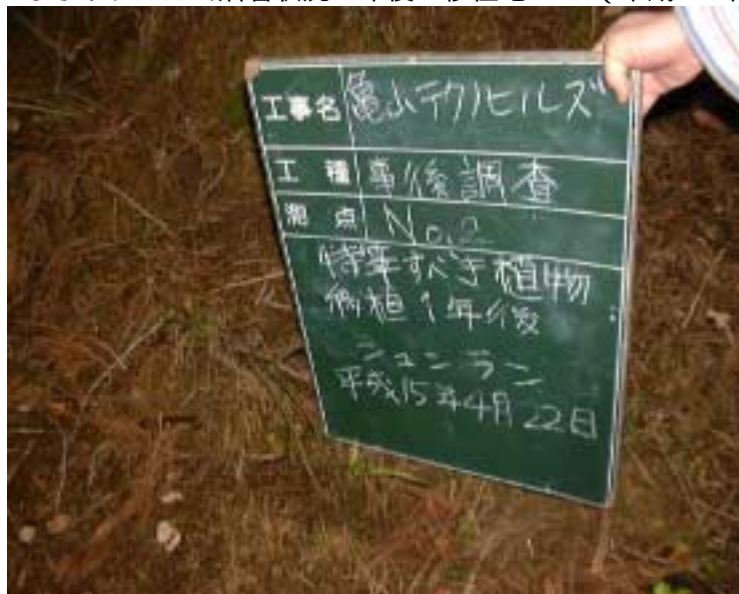 工事名 亀山テクノヒルズ
工種 事後調査
測点 No.2
特筆すべき植物
移植1年後
シュンラン
平成15年4月22日